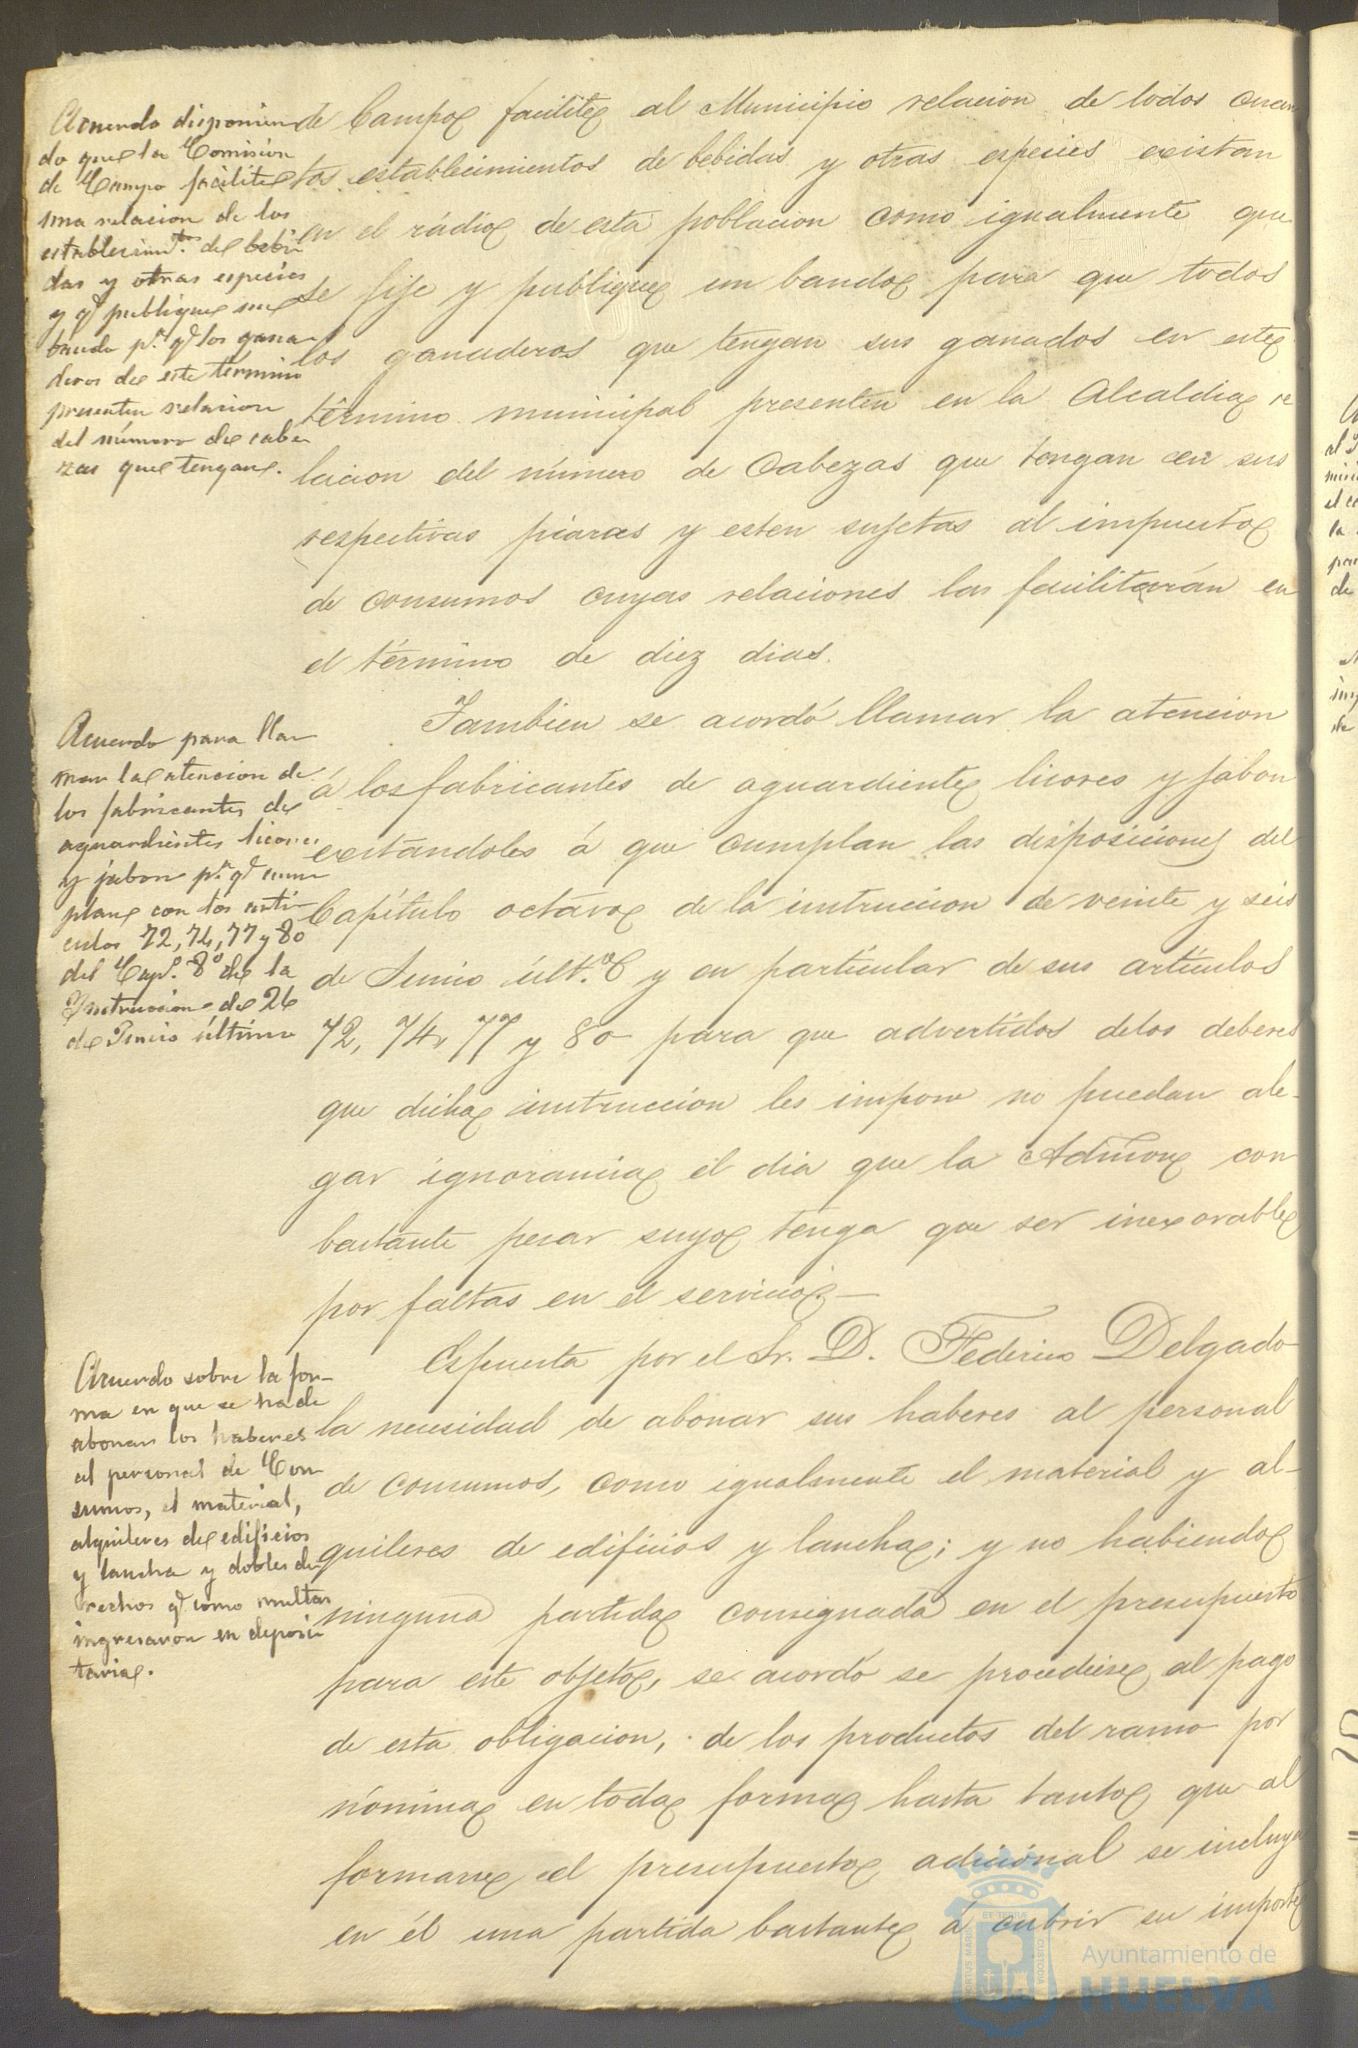 Acuerdo disponien
do que la Comision
de Campo facilite
una relacion de los
establecimtos. de bebi
das y otras especies
y q.e publique un
bando p.a q.e los gana
deros de este término
presenten relacion
del número de cabe
zas que tengan.
de Campo facilite al Municipio relacion de todos cuan
tos establecimientos de bebidas y otras especies existan
en el rádio de esta poblacion como igualmente que
se fije y publique un bando para que todos
los ganaderos que tengan sus ganados en este
término municipal presenten en la Alcaldia re
lacion del número de Cabezas que tengan en sus
respectivas piaras y esten sujetas al impuesto
de consumos cuyas relaciones las facilitarán en
el término de diez dias.
Acuerdo para lla
mar la atencion de
los fabricantes de
aguardientes licores
y jabon p.a q.e cum
plan con los arti
culos 72, 74, 77 y 80
del Cap.o 8º de la
Instruccion de 26
de Junio último
Tambien se acordó llamar la atencion
á los fabricantes de aguardiente licores y jabon
exitandoles á que cumplan las disposiciones del
Capítulo octavo de la intruccion de veinte y seis
de Junio últ.o y en particular de sus artículos
72, 74, 77 y 80 para que advertidos delos deberes
que dicha intruccion les impone no puedan ale-
gar ignorancia el dia que la Admon con
bastante pesar suyo tenga que ser inexorable
por faltas en el servicio.—
Acuerdo sobre la for-
ma en que se ha de
abonar los haberes
al personal de Con
sumos, el material,
alquileres de edificios
y lancha y dobles de
rechos q.e como multas
ingresaron en deposi
taria.
Espuesta por el Sr. D. Federico Delgado
la necesidad de abonar sus haberes al personal
de consumos, como igualmente el material y al-
quileres de edificios y lancha; y no habiendo
ninguna partida consignada en el presupuesto
para este objeto, se acordó se procediese al pago
de esta obligacion, de los productos del ramo por
nómina en toda forma hasta tanto que al
formarse el presupuesto adicional se incluya
en él una partida bastante á cubrir su importe
Ayuntamiento de
HUELVA